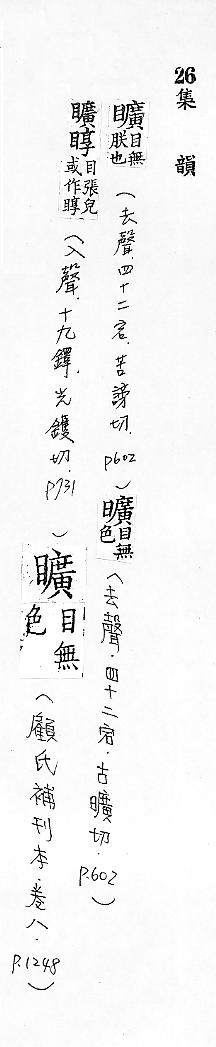 26集韻
矌目無朕也(去聲.四十二宕.苦謗切.p602)矌目無色(去聲.四十二宕.古曠切.p.602)
矌目張皃或作(入聲.十九鐸.光鑊切.p731)矌目無色(顧氏補刊本.卷八.p.1248)